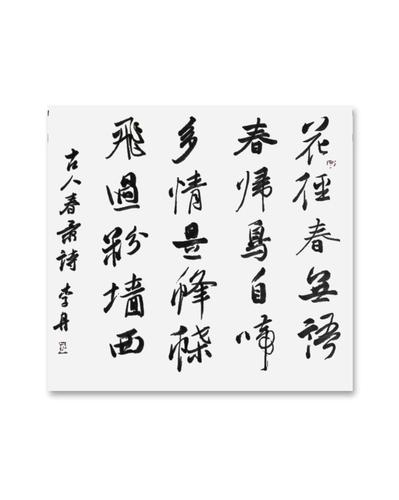 花徑春無語
春帰鳥自啼
多情是蜂蝶
飛過粉墻西
古人春詩 李丹